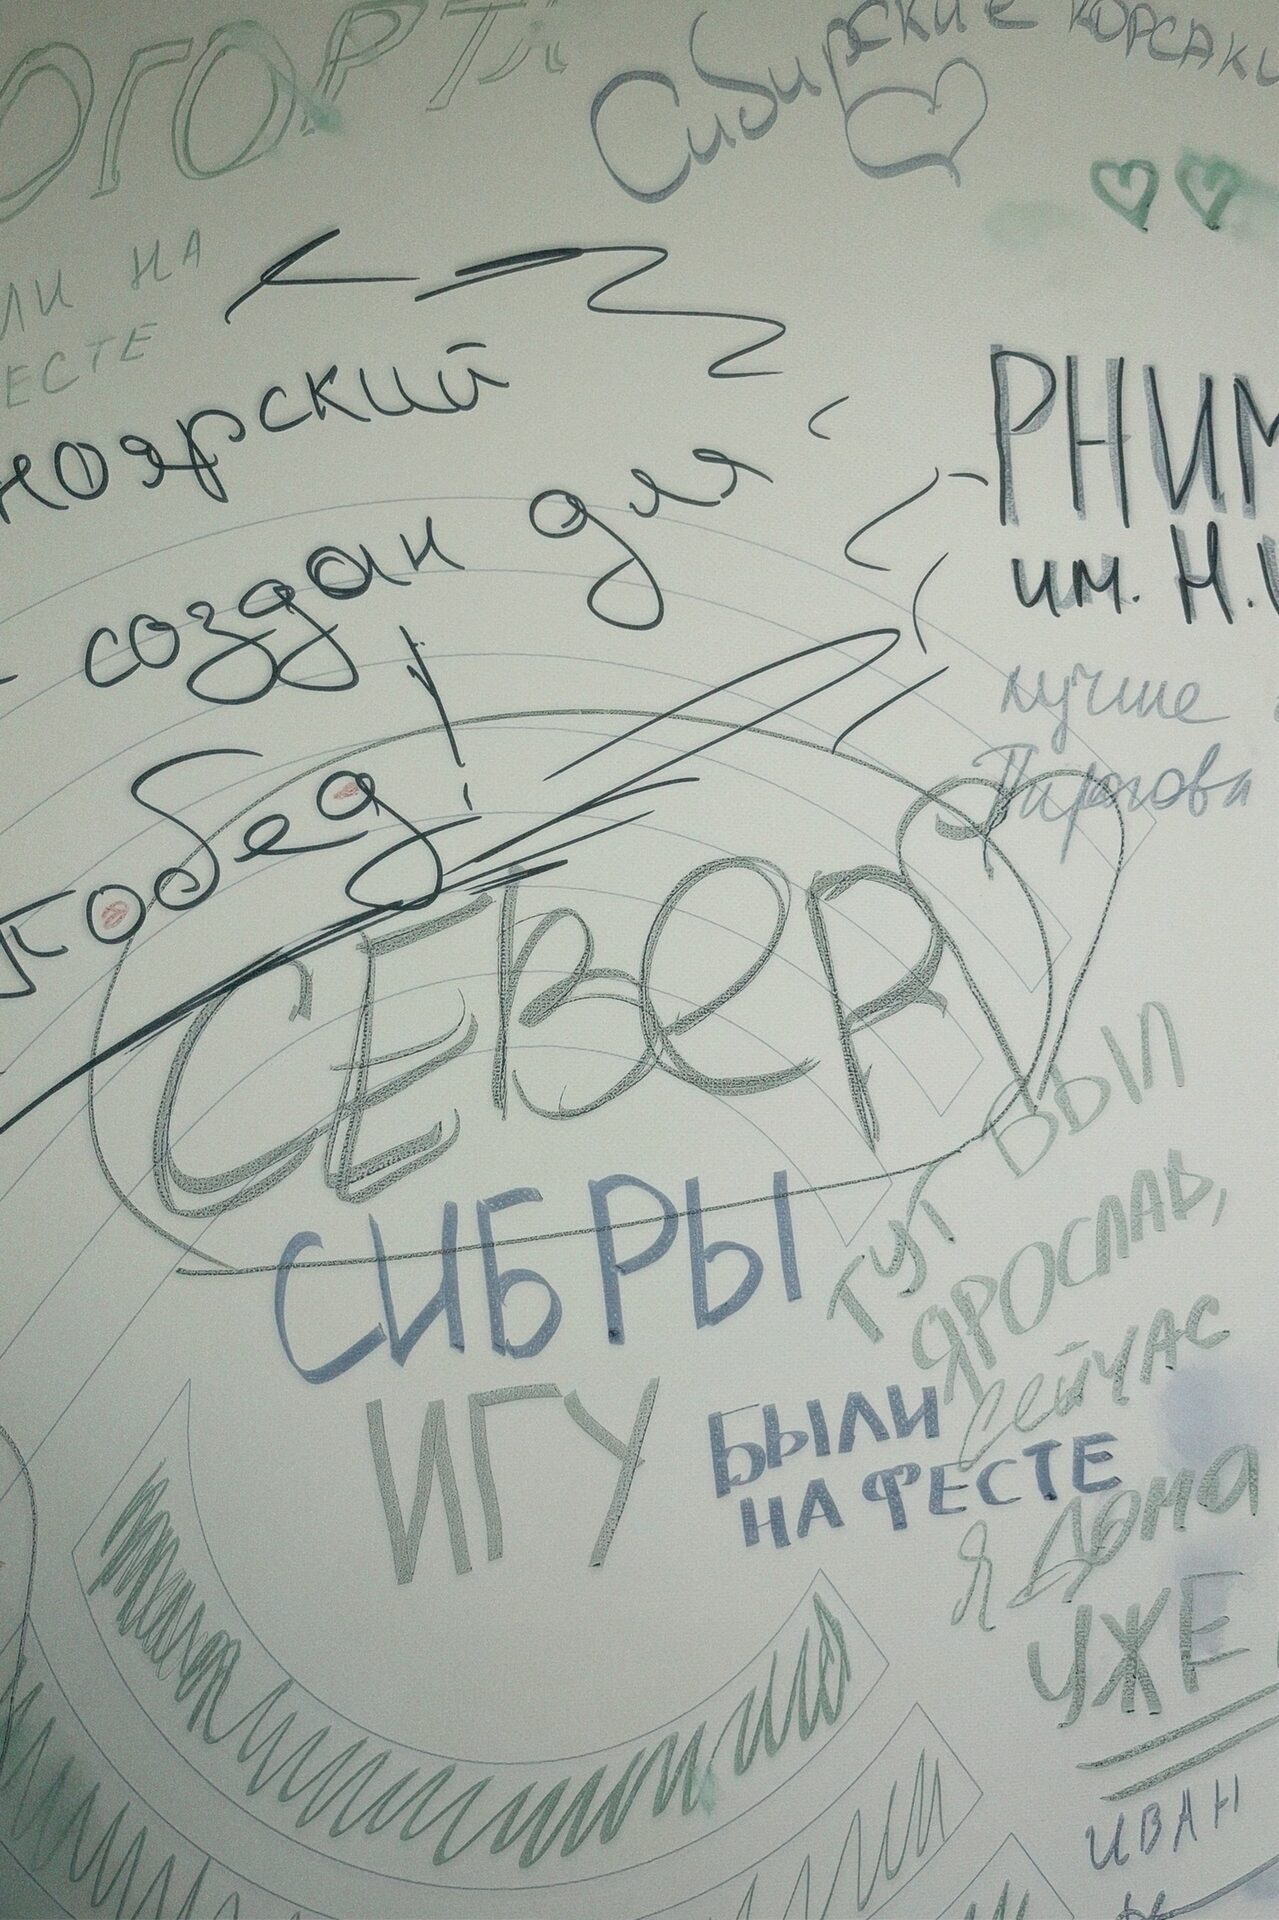 ОГОРТА
Сибирские корсаки
ЛИ НА
ЕСТЕ
ноярский
создан для
побед!
РНИМ
им. Н.
лучше
Пирогова
СЕВЕР
СИБРЫ
ИГУ
БЫЛИ
НА ФЕСТЕ
ТУТ БЫЛ
ЯРОСЛАВ,
сейчас
я дома
УЖЕ
ИВАН